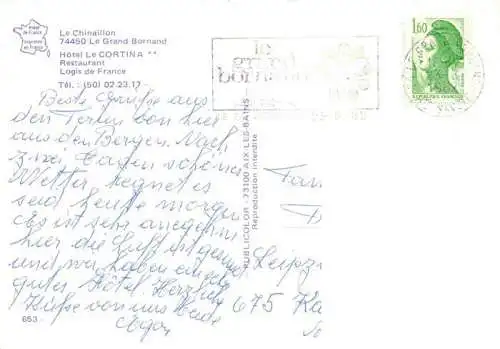 Le Chinaillon
74450 Le Grand Bornand
Hôtel Le CORTINA **
Restaurant
Logis de France
Tél. : (50) 02.23.17 -
Beste Grüße aus
den Ferien von hier
aus den Bergen. Nach
zwei Tagen schöner
Wetter regnet es
seid heute morgen
Es ist sehr angenehm
hier die Luft ist gesund
und wir haben ein
guter Hotel. Herzliche
Grüße von uns
653.-
PUBLICOLOR - 73100 AIX-LES-BAINS
Reproduction interdite
le
grand
bornand
1,60
REPUBLIQUE FRANCAISE
Fam
Leipzi
675 Ka